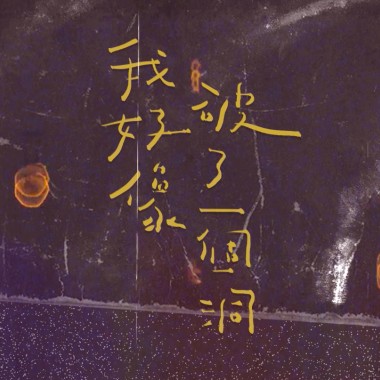 我好像
破了一個洞